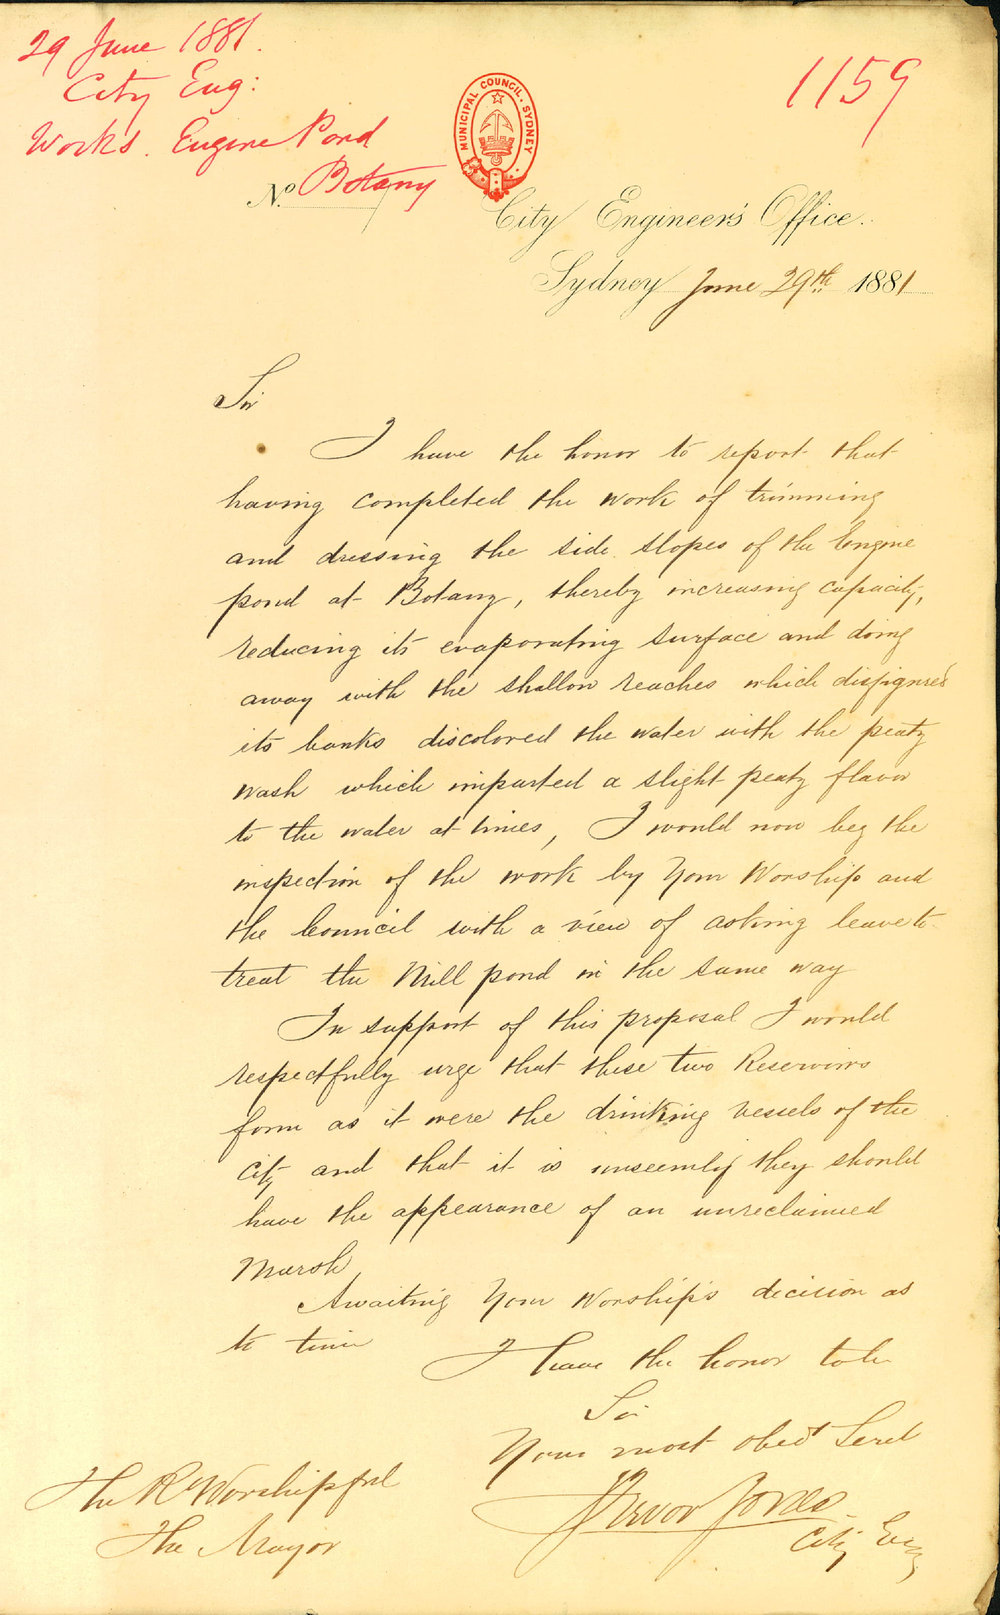 29 June 1881.
City Eng:
Works. Engine Pond
Botany
1159
MUNICIPAL COUNCIL. SYDNEY
No.
City Engineer's Office.
Sydney June 29th. 1881
Sir
I have the honor to report that
having completed the work of trimming
and dressing the side slopes of the Engine
pond at Botany, thereby increasing capacity,
reducing its evaporating surface and doing
away with the shallow reaches which disfigured
its banks discolored the water with the peaty
wash which imparted a slight peaty flavor
to the water at times, I would now beg the
inspection of the work by Your Worship and
the Council with a view of asking leave to
treat the Mill pond in the same way
In support of this proposal I would
respectfully urge that these two Reservoirs
form as it were the drinking vessels of the
city and that it is unseemly they should
have the appearance of an unreclaimed
Marsh,
Awaiting Your Worship's decision as
to time
I have the honor to be
Sir
Your most obedt Servt
Trevor Jones
City Eng
The Rt Worshipful
The Mayor